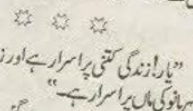 "یار! زندگی کتنی پراسرار ہے اور ز
بانو کی ماں پراسرار ہے۔"